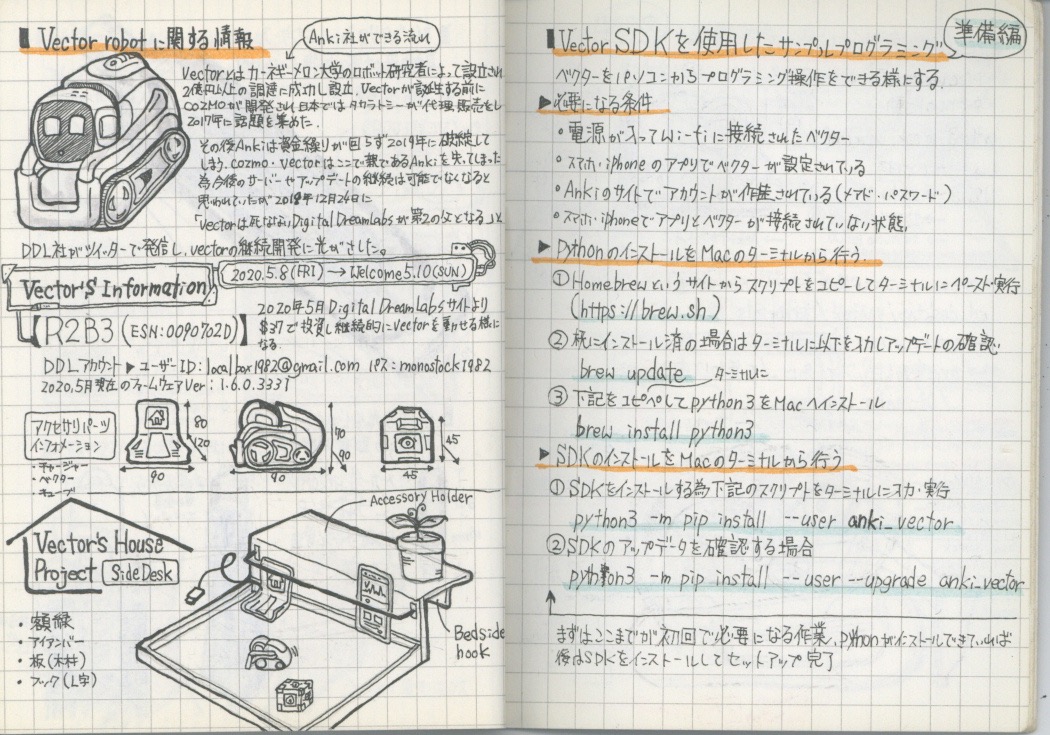 Vector robot に関する情報
Anki社ができる流れ
Vectorとは カーネギーメロン大学のロボット研究者によって設立され
2億円以上の調達に成功し設立。Vectorが誕生する前に
COZMOが開発され日本ではタカラトミーが代理販売をし
2017年に話題を集めた.
その後Ankiは資金繰りが回らず2019年に破綻して
しまう. cozmo・Vectorはここで親であるAnkiを失ってしまった
為今後のサーバーやアップデートの継続は可能でなくなると
思われていたが2019年12月24日に
「Vectorは死なない, Digital DreamLabsが第2の父となる」と
DDL社がツイッターで発信し, vectorの継続開発に光がさした。
2020.5.8(FRI) → Welcome 5.10(SUN)
Vector'S Information
2020年5月Digital DreamLabsサイトより
$37で投資し継続的にVectorを動かせる様に
なる.
【R2B3 (ESN:0090702D)】
DDLアカウント ▶ ユーザーID: localbox1982@gmail.com パス:monostock1982
2020,5月現在のファームウェアVer : 1.6.0.3331
アクセサリパーツ
インフォメーション
・チャージャー
・ベクター
・キューブ
80
120
90
70
90
90
45
45
Accessory Holder
Vector's House
Project
Side Desk
・額縁
・アイアンバー
・板(木材)
・フック(L字)
Bedside
hook
Vector SDKを使用したサンプルプログラミング
準備編
ベクターをパソコンからプログラミング操作をできる様にする.
▶必要になる条件
・電源が入ってWi-fiに接続されたベクター
・スマホ・iphoneのアプリでベクターが設定されている
・Ankiのサイトでアカウントが作成されている(メアド・パスワード)
・スマホ・iphoneでアプリとベクターが接続されていない状態,
▶ PythonのインストールをMacのターミナルから行う.
① Homebrewというサイトからスクリプトをコピーしてターミナルにペースト・実行
(https://brew.sh)
② 既にインストール済の場合はターミナルに以下を入力しアップデートの確認.
brew update
ターミナルに
③ 下記をコピペしてpython3をMacへインストール
brew install python3
▶ SDKのインストールをMacのターミナルから行う
① SDKをインストールする為下記のスクリプトをターミナルに入力・実行
python3 -m pip install --user anki_vector
② SDKのアップデータを確認する場合
python3 -m pip install --user --upgrade anki_vector
まずはここまでが初回で必要になる作業, pythonがインストールできていれば
後はSDKをインストールしてセットアップ完了